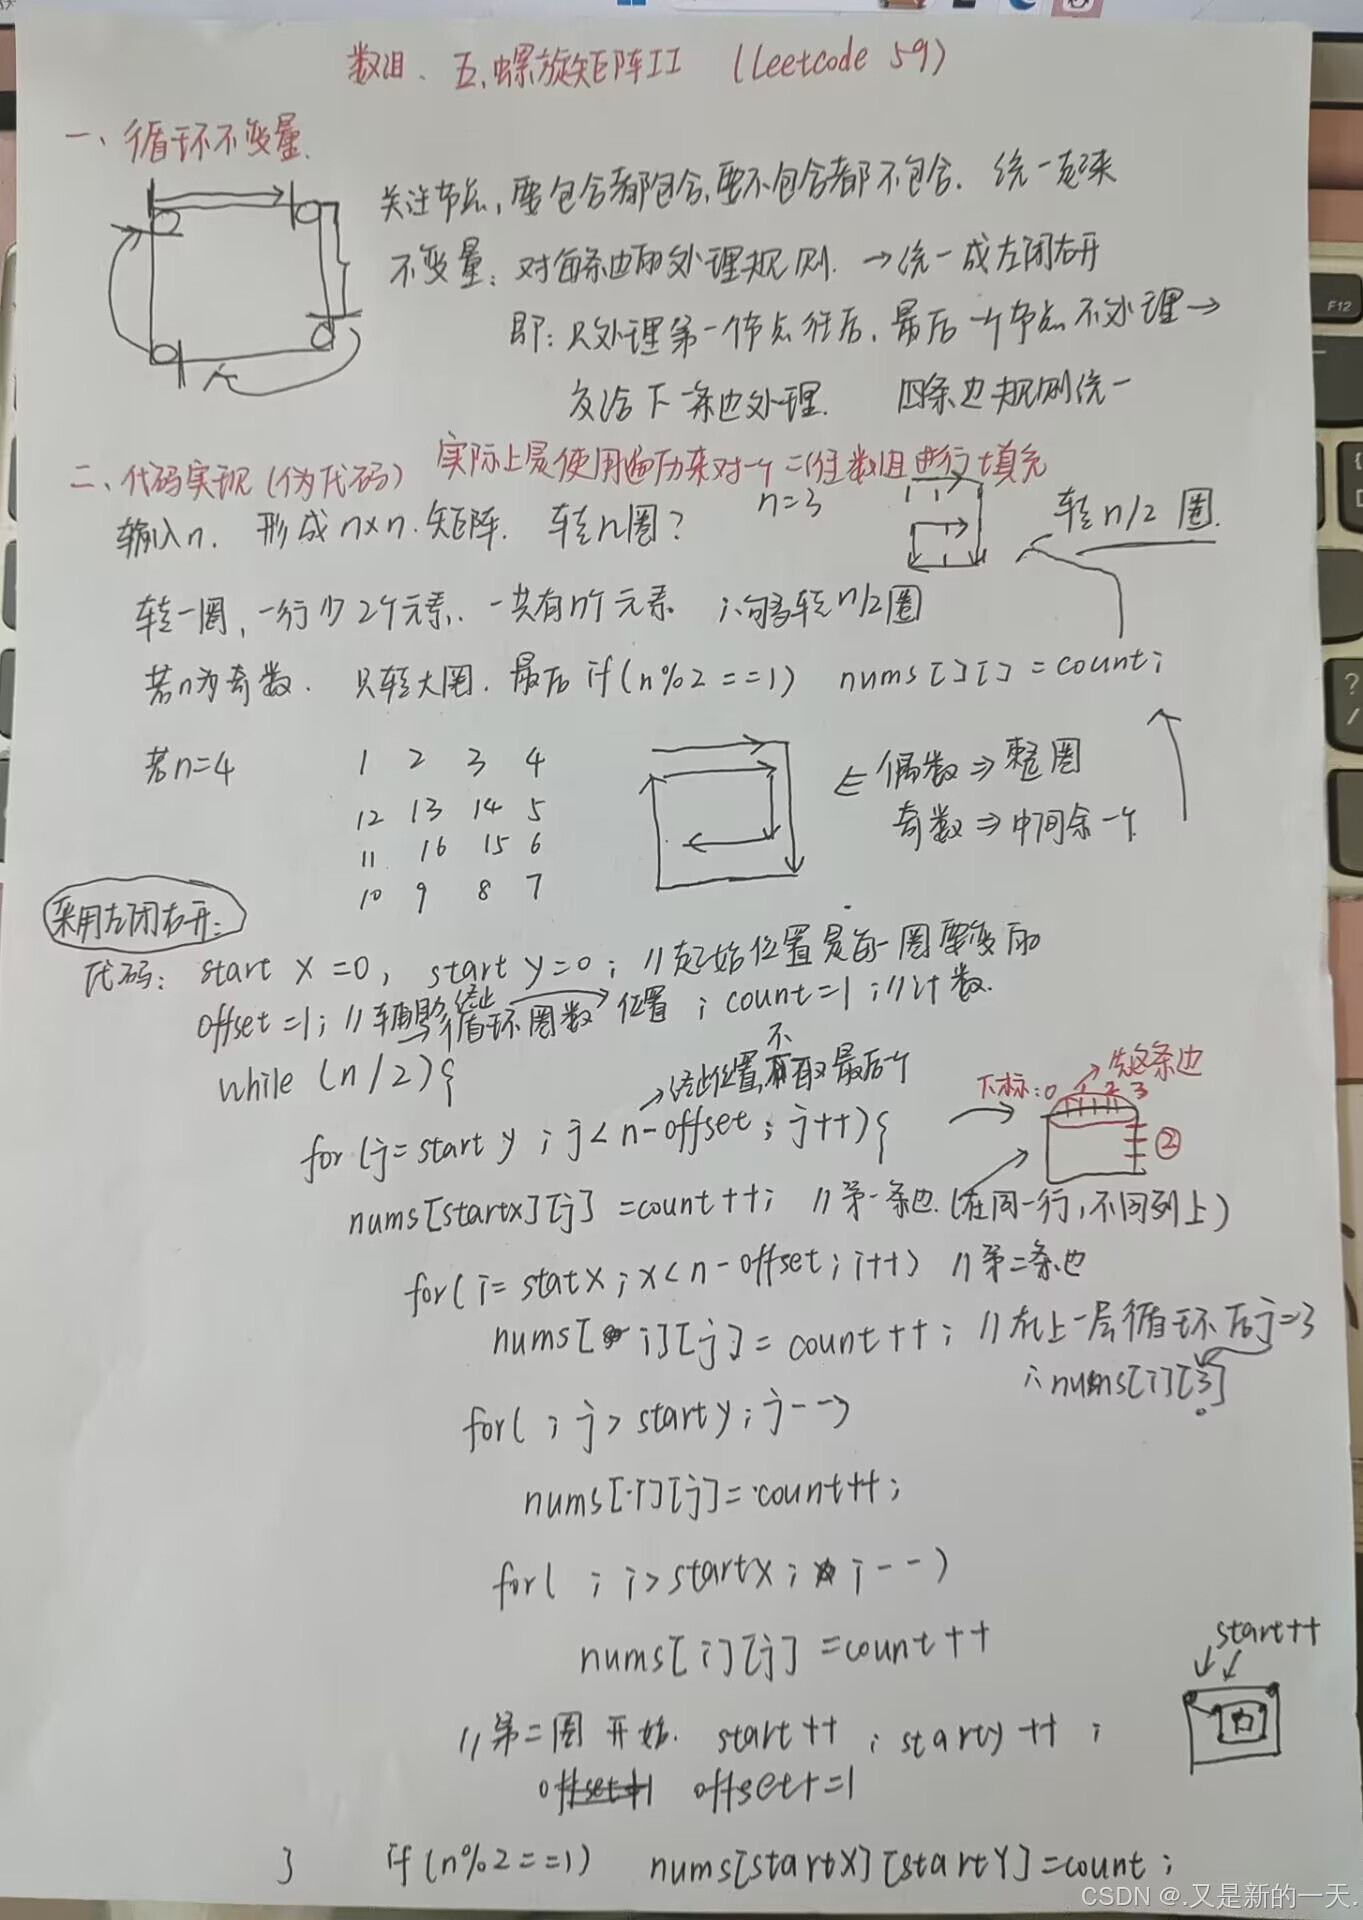 数组、五、螺旋矩阵II (Leetcode 59)
一、循环不变量.
关注节点,要包含都包含,要不包含都不包含. 统一起来
不变量:对每条边的处理规则. →统一成左闭右开
即:只处理第一个节点往后,最后一个节点不处理→
交给下一条边处理. 四条边规则统一
二、代码实现(伪代码) 实际上是使用遍历来对一个二维数组进行填充
输入n. 形成n×n.矩阵. 转几圈? n=3 转n/2 圈.
转一圈,一行少2个元素. 一共有n个元素 ∴向多转n/2圈
若n为奇数. 只转大圈. 最后 if(n%2==1) nums[][] =count;
若n=4
1 2 3 4
12 13 14 5
11 16 15 6
10 9 8 7
⇐ 偶数⇒整圈
奇数⇒中间余一个
采用左闭右开:
代码: start x =0, start y=0; //起始位置是每一圈要变的
offset=1; //辅助 终止 位置 ; count=1; //计数.
→循环圈数
while (n/2){
→终止位置,不取最后一个
下标:0 1 2 3
→先这条边
for (j=start y ; j< n-offset; j++){
②
nums[startx][j] =count++; //第一条边.(在同一行,不同列上)
for( i= statx ; x< n-offset; i++) //第二条边
nums[i][j]= count++; //在上一层循环后j=3
∴nums[i][3]
for( ; j> starty; j--)
nums[i][j]=count++;
for( ; i>startx; i--)
nums[i][j] =count++
start++
//第二圈 开始. start++ ; starty++ ;
offset+=1
} if(n%2==1) nums[startX][startY]=count;
CSDN @.又是新的一天.